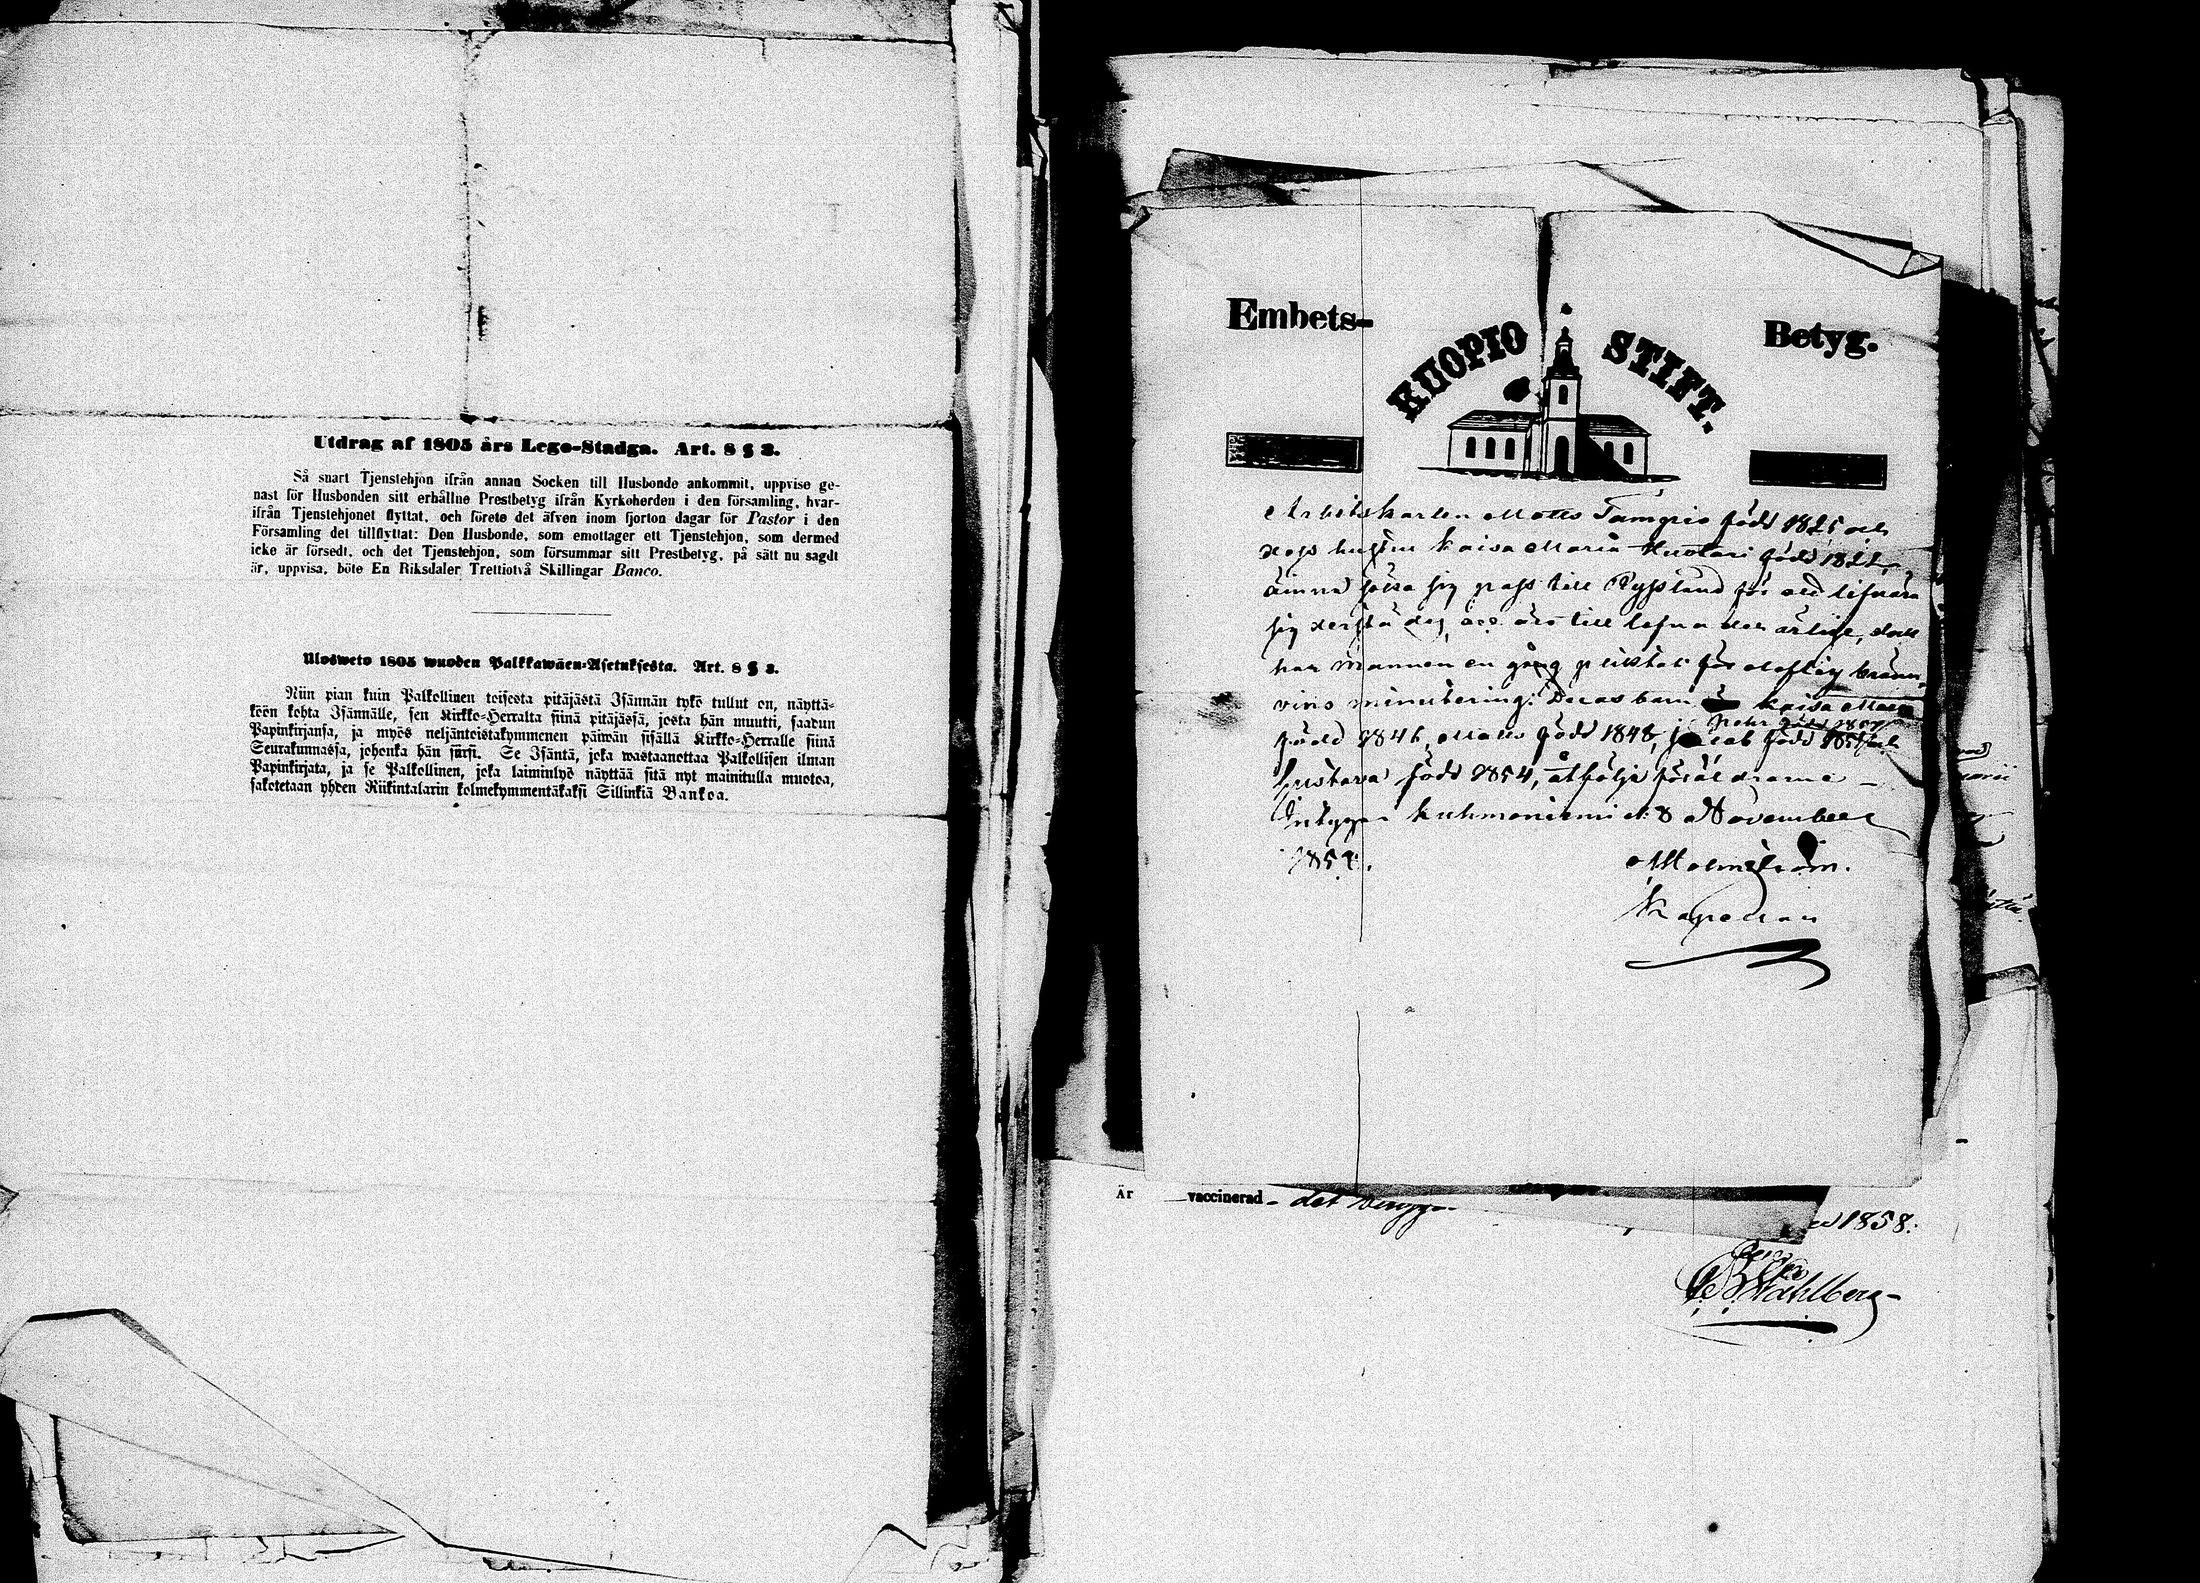 Utdrag af 1805 års Lego-Stadga. Art. 8 § 3.
Så snart Tjenstehjon ifrån annan Socken till Husbonde ankommit, uppvise ge-
nast för Husbonden sitt erhållne Prestbetyg ifrån Kyrkoherden i den församling, hvar-
ifrån Tjenstehjonet flyttat, och förete det äfven inom fjorton dagar för Pastor i den
Församling det tillflyttat: Den Husbonde, som emottager ett Tjenstehjon, som dermed
icke är försedt, och det Tjenstehjon, som försummar sitt Prestbetyg, på sätt nu sagdt
är, uppvisa, böte En Riksdaler Trettiotvå Skillingar Banco.
Ulosweto 1805 wuoden Palkkawäen-Asetuksesta. Art. 8 § 3.
Niin pian kuin Palkollinen toisesta pitäjästä Isännän tykö tullut on, näyttä-
köön kohta Isännälle, sen Kirkko-Herralta siinä pitäjässä, josta hän muutti, saadun
Papinkirjansa, ja myös neljäntoistakymmenen päiwän sisällä Kirkko-Herralle siinä
Seurakunnassa, johonka hän siirsi. Se Isäntä, joka wastaanottaa Palkollisen ilman
Papinkirjata, ja se Palkollinen, joka laiminlyö näyttää sitä nyt mainitulla muotoa,
sakotetaan yhden Riikintalarin kolmekymmentäkaksi Sillinkiä Bankoa.
Embets-
KUOPIO STIFT.
Betyg.
Arbetskarlen Matts Tampio född 1825 och
dess hustru Kaisa Maria Huotari född 1822,
ämna lösa sig pass till Ryssland för att lifnära
sig derstädes, är till lefnaden ärlige, dock
har mannen en gång pliktat för olaflig bränn-
vins minutering. Deras barn Kaisa Maria
född 1846, Matts född 1848, Jacob född
Gustava född 1854, åtfölja föräldrarne
Intygar Kuhmoniemi d. 8 November
M Holmström.
Kapellan
Är vaccinerad - det intygar
1858.
Wahlberg